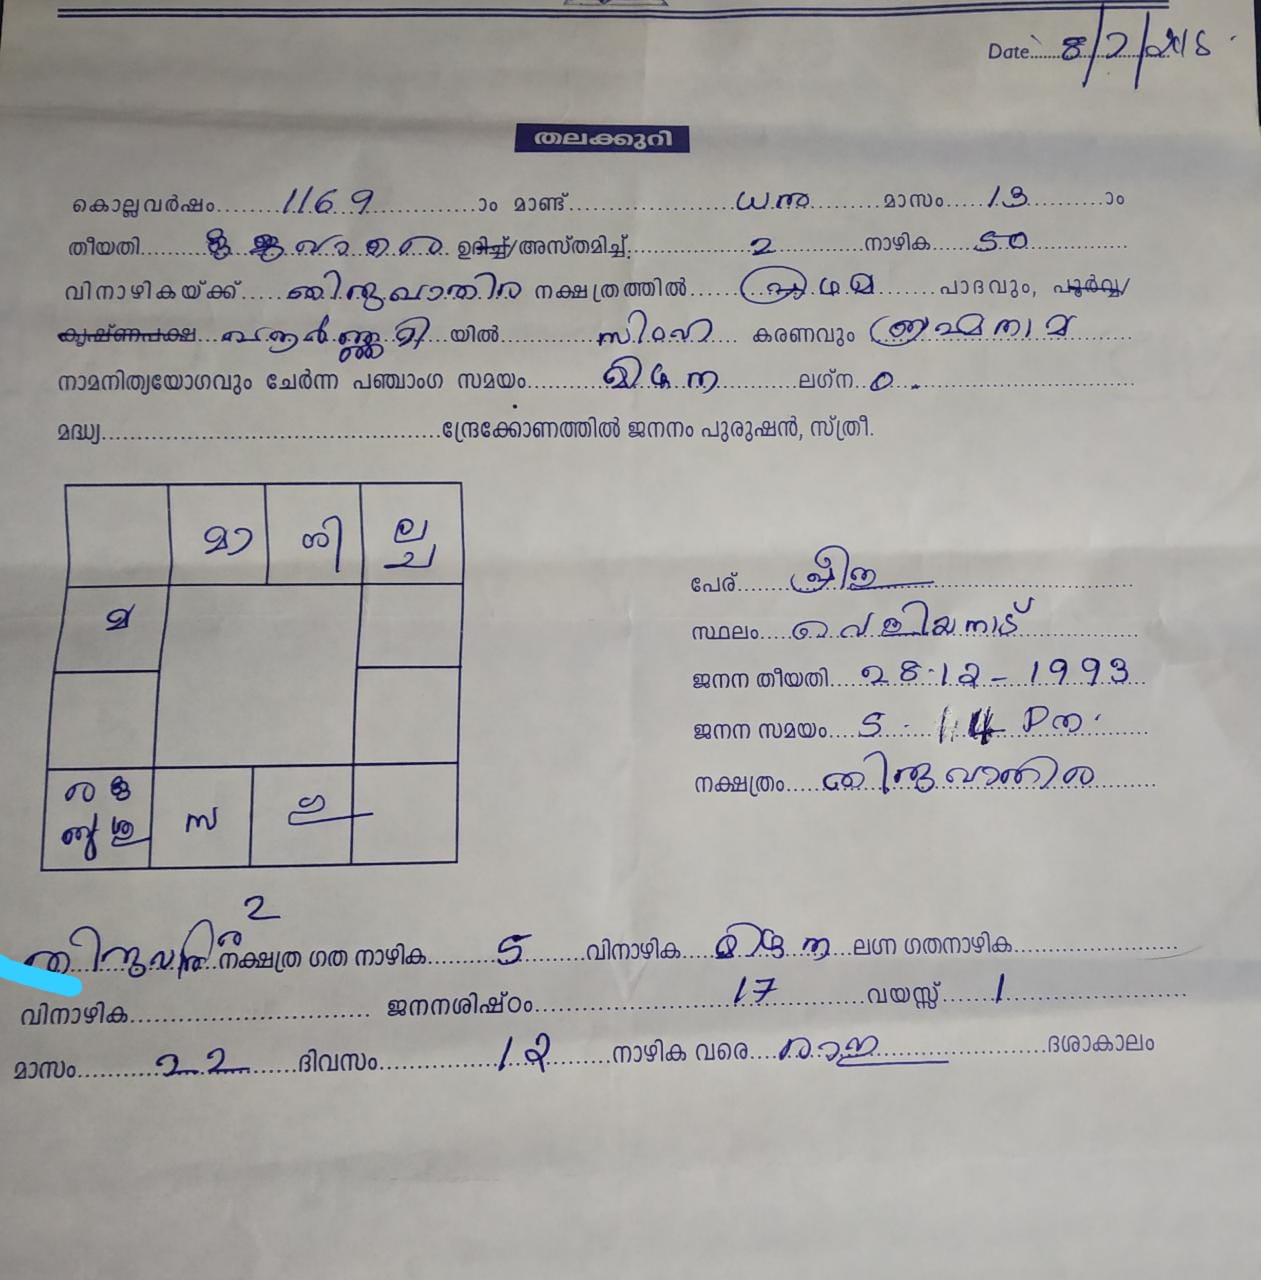 Date 8/2/2015
തലക്കുറി
കൊല്ലവർഷം 1169 ാം മാണ്ട് ധനു മാസം 13 ാം
തീയതി ഉദിച്ച്/അസ്തമിച്ച് 2 നാഴിക 50
വിനാഴികയ്ക്ക് തിരുവാതിര നക്ഷത്രത്തിൽ പ്രഥമ പാദവും, പൂർവ്വ/
കൃഷ്ണപക്ഷ യിൽ സിംഹ കരണവും ബ്രഹ്മനാമ
നാമനിത്യയോഗവും ചേർന്ന പഞ്ചാംഗ സമയം മിഥുന ലഗ്ന ം
മദ്ധ്യ ന്ദ്രേക്കോണത്തിൽ ജനനം പുരുഷൻ, സ്ത്രീ.
മാ ശി ല ച
മ
ര കു ബു ശു സ ഗു
പേര്
സ്ഥലം വെളിയനാട്
ജനന തീയതി 28.12-1993
ജനന സമയം 5.14 Pm
നക്ഷത്രം തിരുവാതിര
2
തിരുവാതിര നക്ഷത്ര ഗത നാഴിക 5 വിനാഴിക മിഥുന ലഗ്ന ഗതനാഴിക
വിനാഴിക ജനനശിഷ്ഠം 17 വയസ്സ് 1
മാസം 22 ദിവസം 12 നാഴിക വരെ രാഹു ദശാകാലം